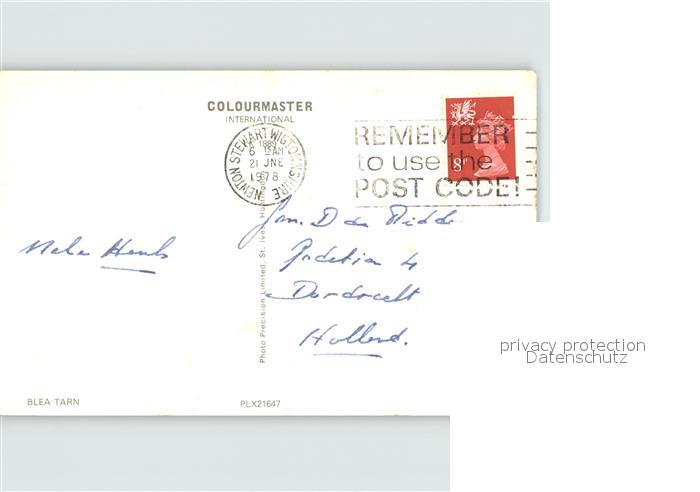 COLOURMASTER
INTERNATIONAL
NEWTON STEWART WIGTOWNSHIRE
6 15AM
21 JNE
1978
REMEMBER
to use the
POST CODE!
8
4
Dordrecht
Holland.
Photo Precision Limited, St. Ives, Hu
BLEA TARN
PLX21647
privacy protection
Datenschutz